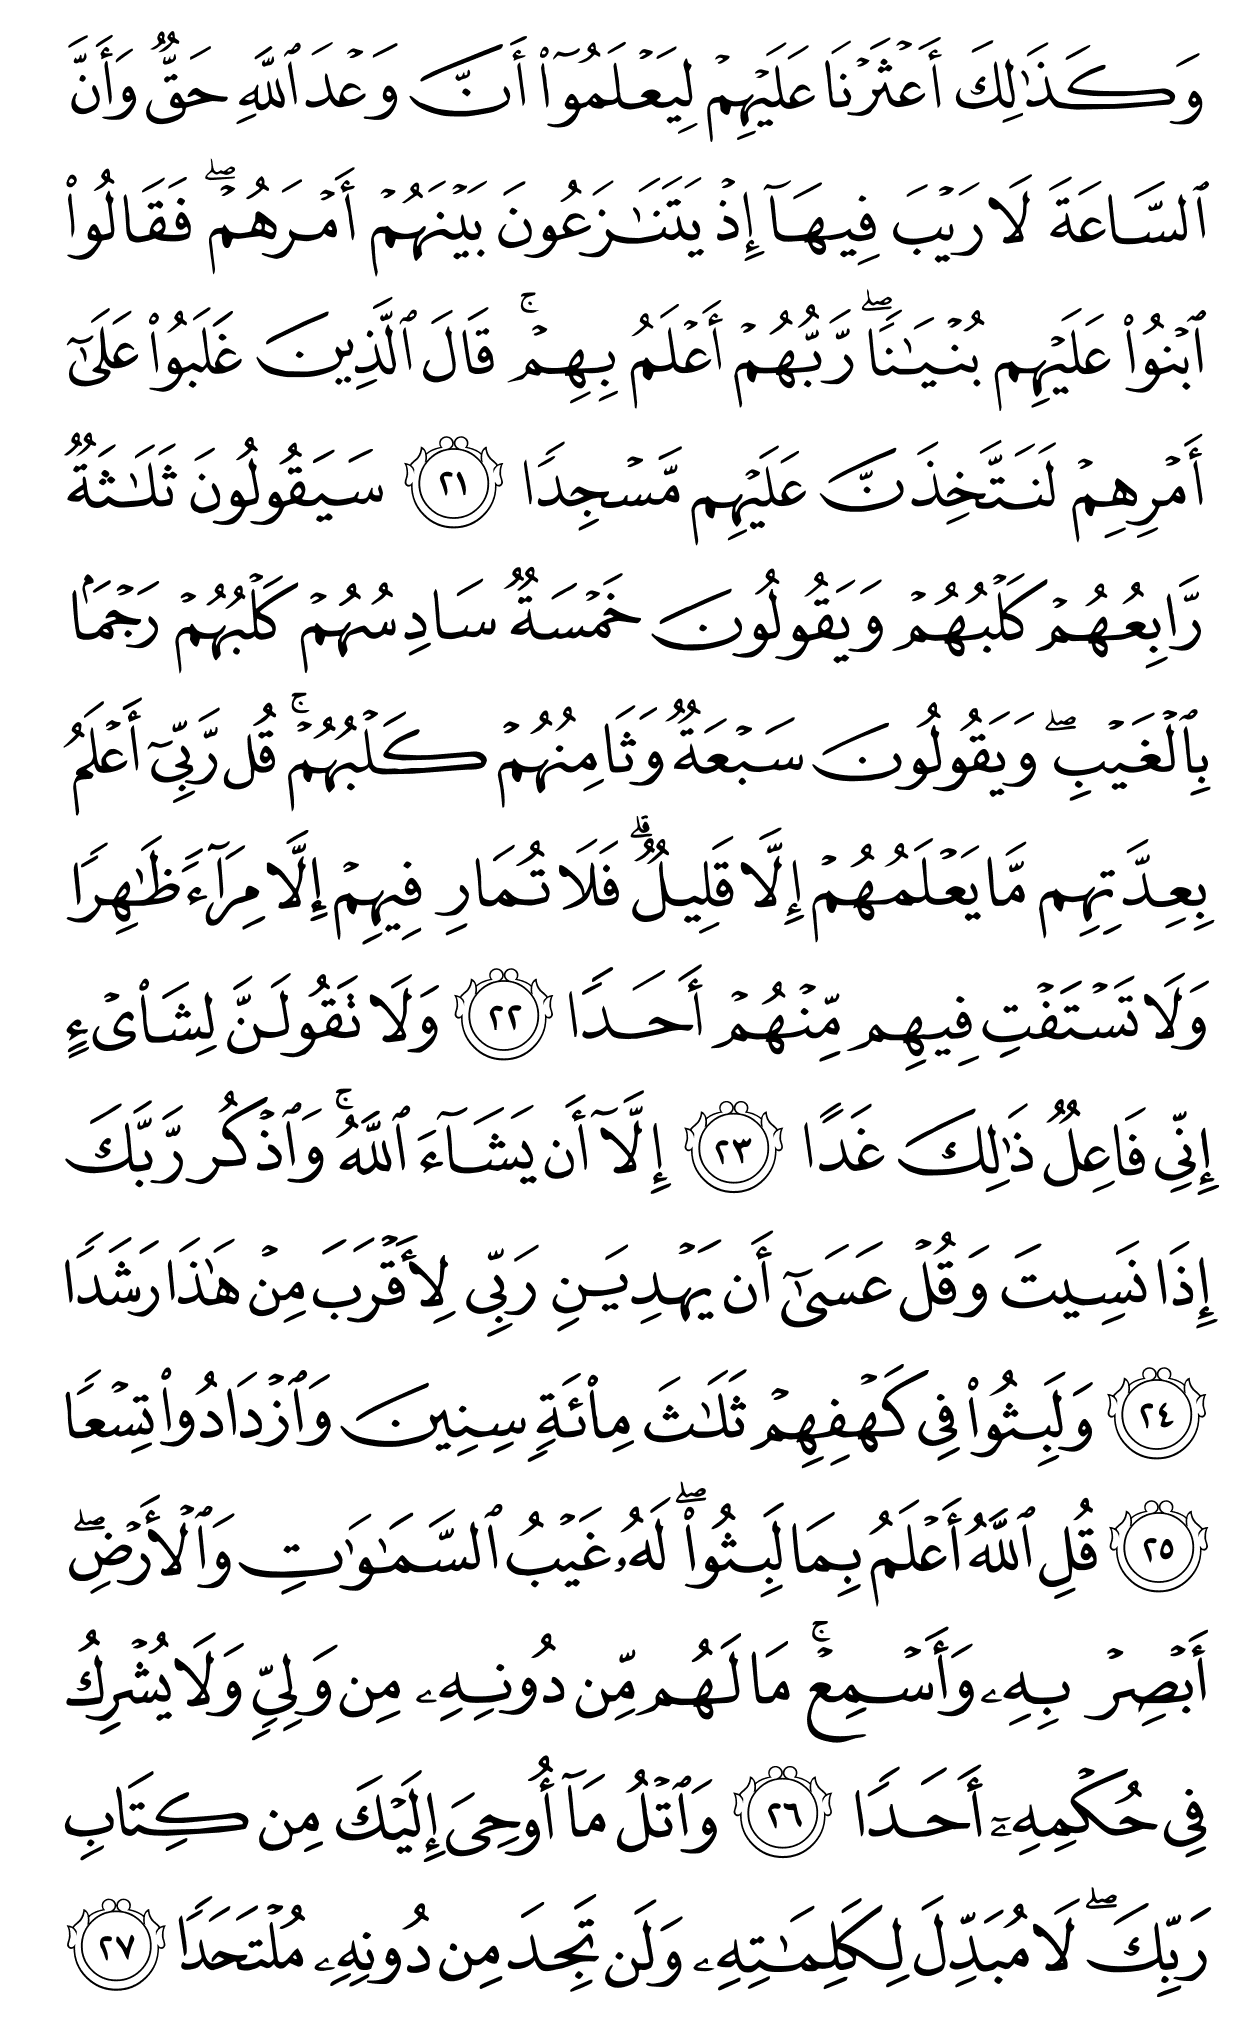 وَكَذَٰلِكَ أَعۡثَرۡنَا عَلَيۡهِمۡ لِيَعۡلَمُوٓاْ أَنَّ وَعۡدَ ٱللَّهِ حَقّٞ وَأَنَّ
ٱلسَّاعَةَ لَا رَيۡبَ فِيهَآ إِذۡ يَتَنَٰزَعُونَ بَيۡنَهُمۡ أَمۡرَهُمۡۖ فَقَالُواْ
ٱبۡنُواْ عَلَيۡهِم بُنۡيَٰنٗاۖ رَّبُّهُمۡ أَعۡلَمُ بِهِمۡۚ قَالَ ٱلَّذِينَ غَلَبُواْ عَلَىٰٓ
أَمۡرِهِمۡ لَنَتَّخِذَنَّ عَلَيۡهِم مَّسۡجِدٗا ٢١ سَيَقُولُونَ ثَلَٰثَةٞ
رَّابِعُهُمۡ كَلۡبُهُمۡ وَيَقُولُونَ خَمۡسَةٞ سَادِسُهُمۡ كَلۡبُهُمۡ رَجۡمَۢا
بِٱلۡغَيۡبِۖ وَيَقُولُونَ سَبۡعَةٞ وَثَامِنُهُمۡ كَلۡبُهُمۡۚ قُل رَّبِّيٓ أَعۡلَمُ
بِعِدَّتِهِم مَّا يَعۡلَمُهُمۡ إِلَّا قَلِيلٞۗ فَلَا تُمَارِ فِيهِمۡ إِلَّا مِرَآءٗ ظَٰهِرٗا
وَلَا تَسۡتَفۡتِ فِيهِم مِّنۡهُمۡ أَحَدٗا ٢٢ وَلَا تَقُولَنَّ لِشَاْيۡءٍ
إِنِّي فَاعِلٞ ذَٰلِكَ غَدًا ٢٣ إِلَّآ أَن يَشَآءَ ٱللَّهُۚ وَٱذۡكُر رَّبَّكَ
إِذَا نَسِيتَ وَقُلۡ عَسَىٰٓ أَن يَهۡدِيَنِ رَبِّي لِأَقۡرَبَ مِنۡ هَٰذَا رَشَدٗا
٢٤ وَلَبِثُواْ فِي كَهۡفِهِمۡ ثَلَٰثَ مِاْئَةٖ سِنِينَ وَٱزۡدَادُواْ تِسۡعٗا
٢٥ قُلِ ٱللَّهُ أَعۡلَمُ بِمَا لَبِثُواْۖ لَهُۥ غَيۡبُ ٱلسَّمَٰوَٰتِ وَٱلۡأَرۡضِۖ
أَبۡصِرۡ بِهِۦ وَأَسۡمِعۡۚ مَا لَهُم مِّن دُونِهِۦ مِن وَلِيّٖ وَلَا يُشۡرِكُ
فِي حُكۡمِهِۦٓ أَحَدٗا ٢٦ وَٱتۡلُ مَآ أُوحِيَ إِلَيۡكَ مِن كِتَابِ
رَبِّكَۖ لَا مُبَدِّلَ لِكَلِمَٰتِهِۦ وَلَن تَجِدَ مِن دُونِهِۦ مُلۡتَحَدٗا ٢٧